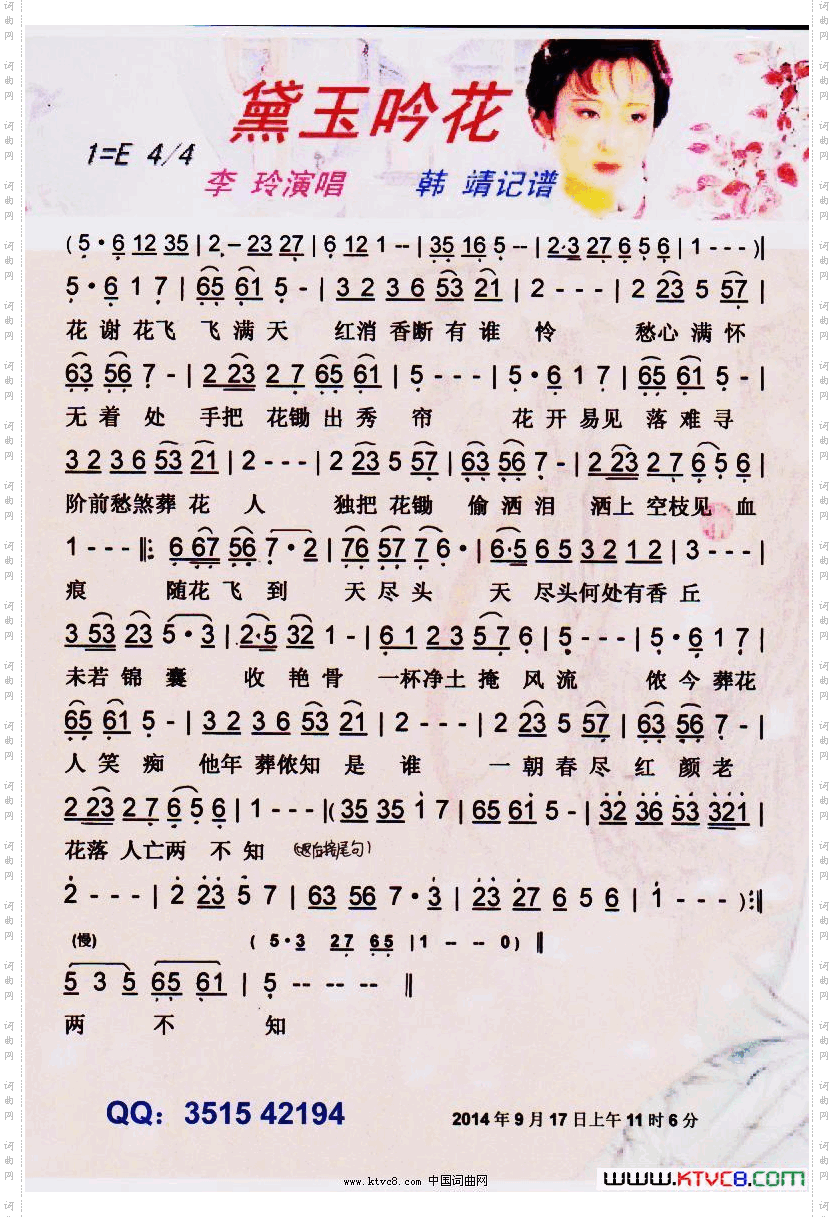 黛玉吟花
1=E 4/4
李 玲演唱 韩 靖记谱
( 5·6 12 35 | 2 – 23 27 | 6 12 1 -- | 35 16 5 -- | 2·3 27 6 5 6 | 1 - - - )|
5·6 1 7 | 65 61 5 - | 3 2 3 6 53 21 | 2 - - - | 2 23 5 57 |
花 谢 花飞 飞 满 天 红消 香断 有 谁 怜 愁心 满 怀
63 56 7 - | 2 23 2 7 65 61 | 5 - - - | 5·6 1 7 | 65 61 5 - |
无 着 处 手把 花锄 出 秀 帘 花 开 易见 落 难 寻
3 2 3 6 53 21 | 2 - - - | 2 23 5 57 | 63 56 7 - | 2 23 2 7 6 5 6 |
阶前愁煞葬 花 人 独把 花锄 偷 洒 泪 洒上 空枝见 血
1 - - - ‖: 6 67 56 7·2 | 76 57 7 6· | 6·5 6 5 3 2 1 2 | 3 - - - |
痕 随花 飞 到 天 尽 头 天 尽头何处有香 丘
3 53 23 5·3 | 2·5 32 1 - | 6 1 2 3 5 7 6 | 5 - - - | 5·6 1 7 |
未若 锦 囊 收 艳 骨 一杯净土 掩 风 流 侬 今 葬花
65 61 5 - | 3 2 3 6 53 21 | 2 - - - | 2 23 5 57 | 63 56 7 - |
人 笑 痴 他年 葬侬知 是 谁 一 朝 春 尽 红 颜 老
2 23 2 7 6 5 6 | 1 - - - |( 35 35 1 7 | 65 61 5 - | 32 36 53 321 |
花落 人亡两 不 知
2 - - - | 2 23 5 7 | 63 56 7·3 | 23 27 6 5 6 | 1 - - - ):‖
(慢) ( 5·3 27 65 | 1 -- -- 0 ) ‖
5 3 5 65 61 | 5 -- -- -- ‖
两 不 知
QQ：3515 42194
2014 年 9 月 17 日上午 11 时 6 分
www.ktvc8.com 中国词曲网
WWW.KTVC8.COM